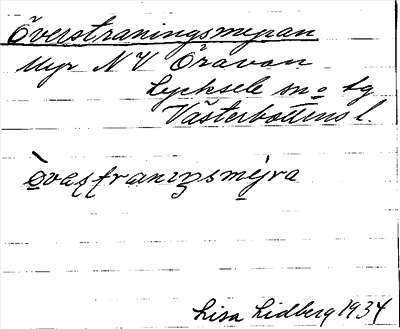 Överstraningsmyran
Myr NV Öravan
Lycksele sn o tg
Västerbottens l.
òvaʂʈraniŋsmy̆ra
Lisa Lidberg 1934